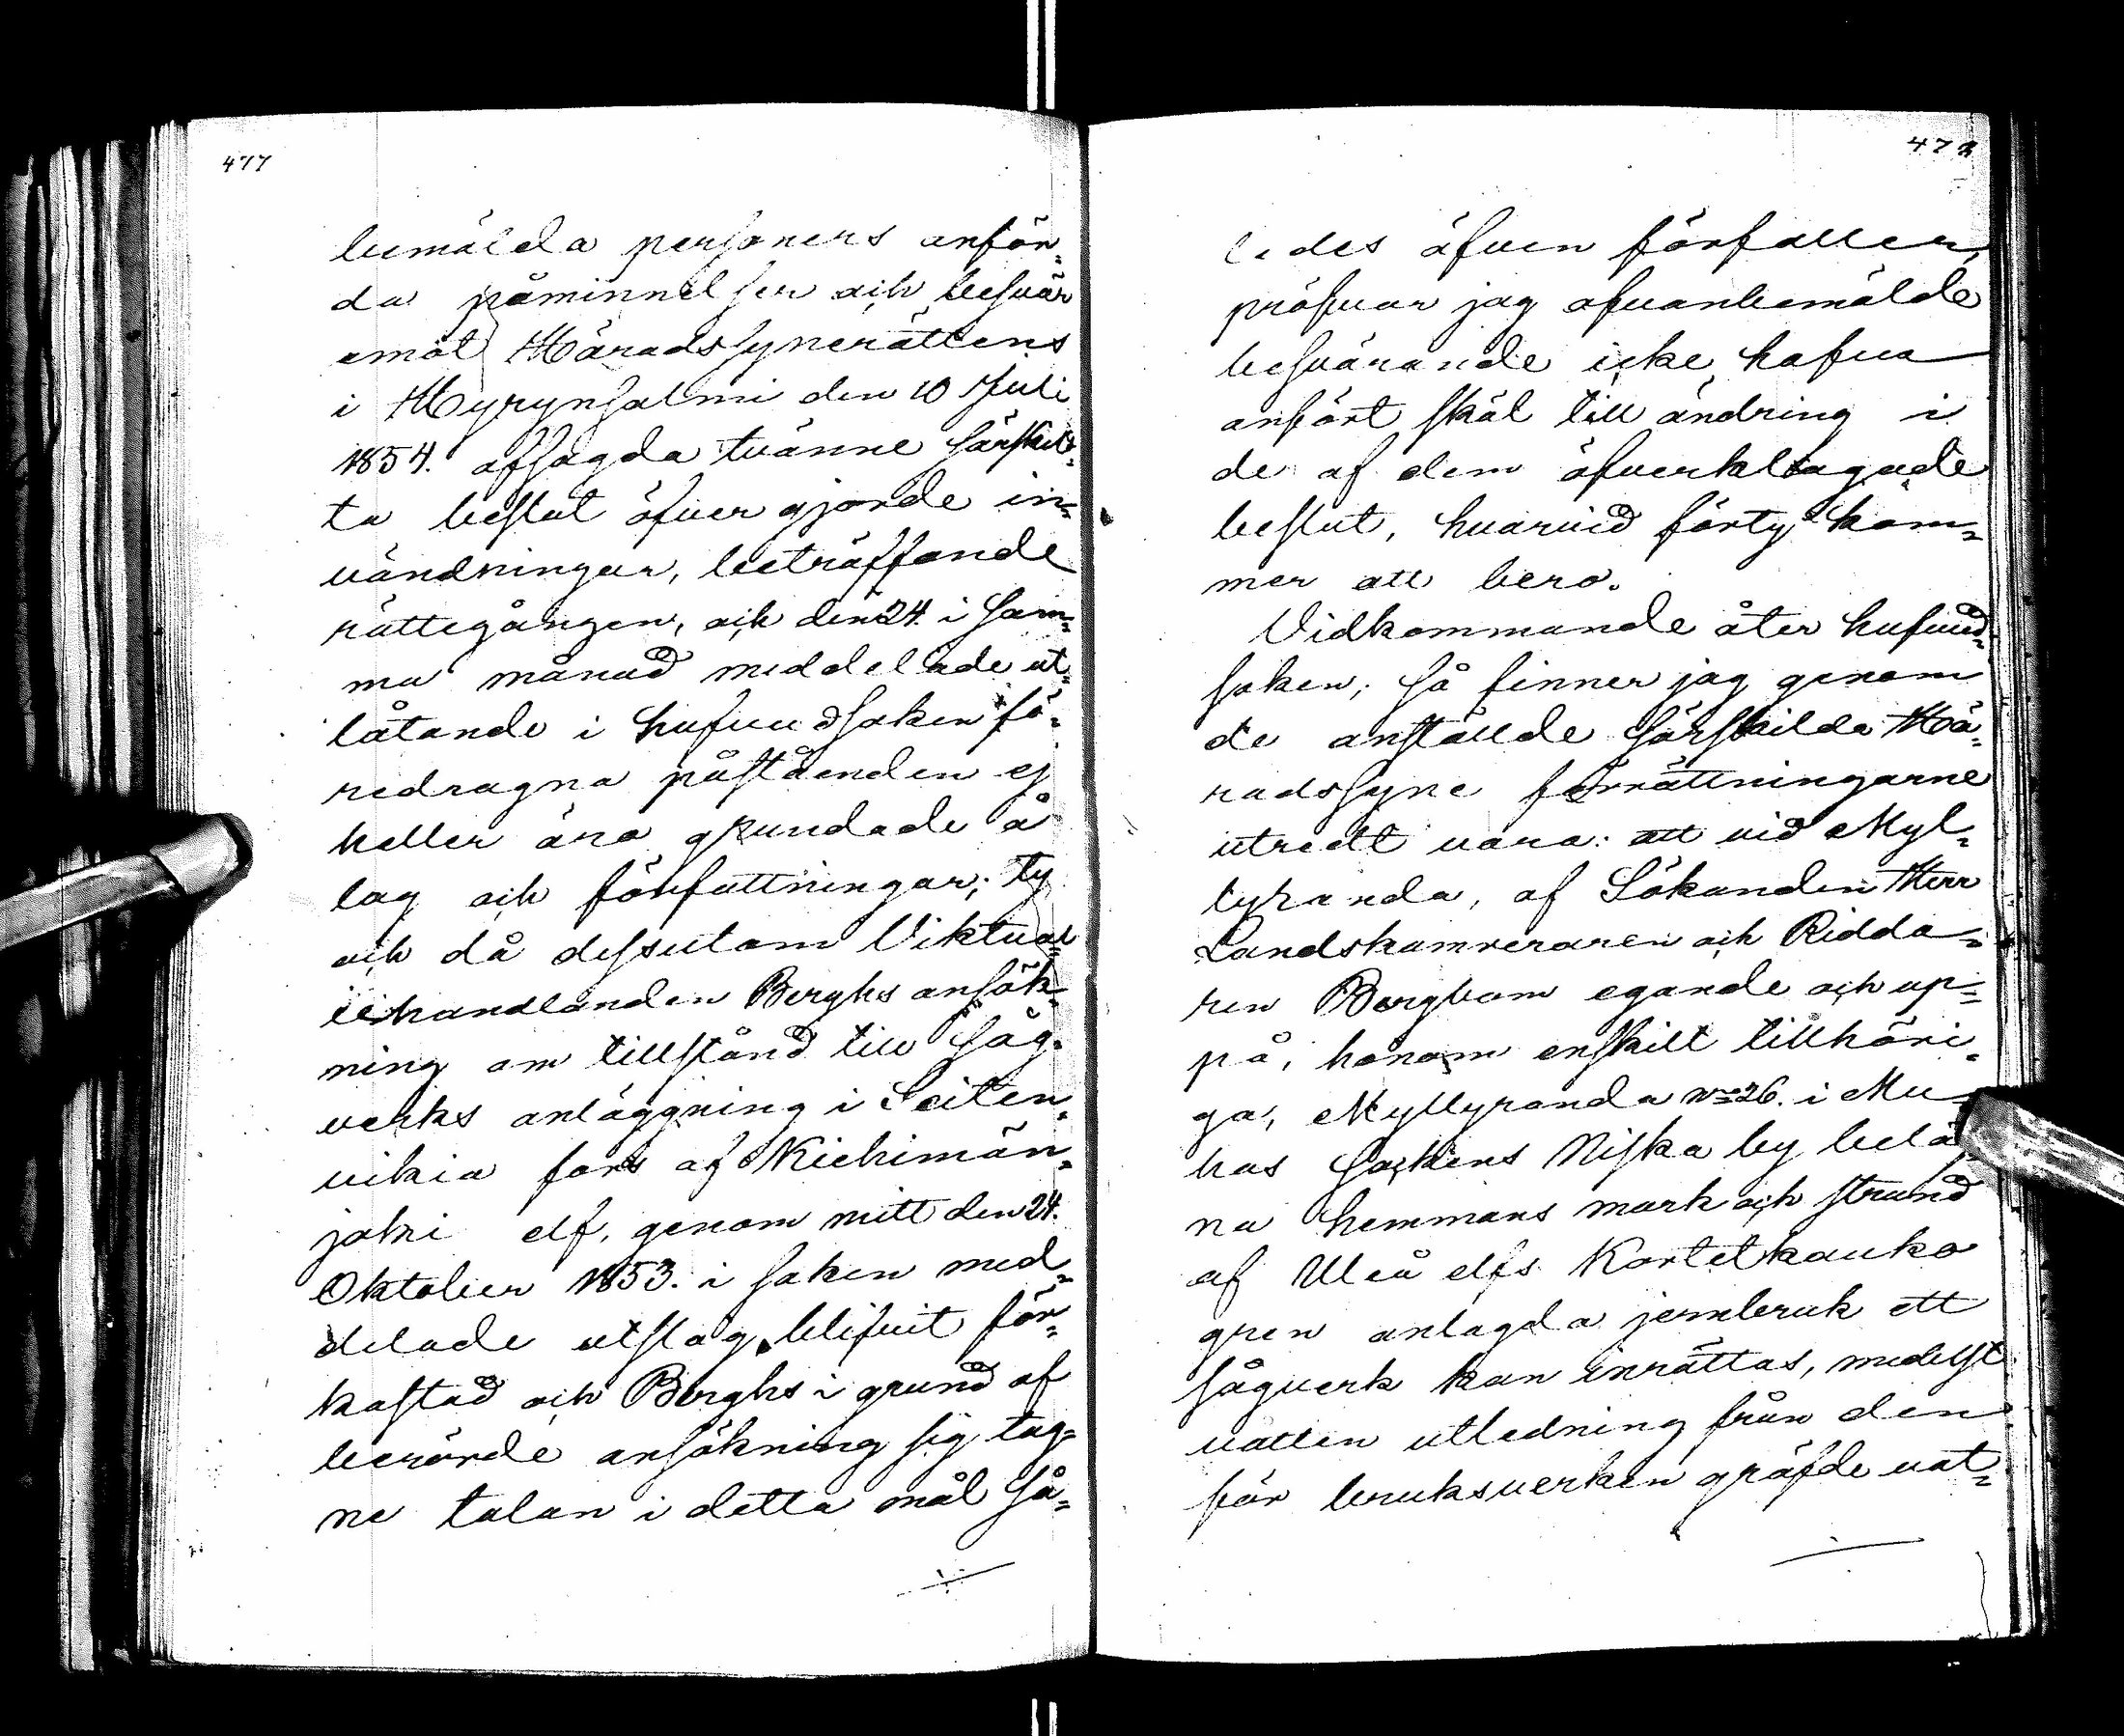 477
bemälda personers anför¬
da påminnelser och besvär
emot Häradssynerättens
i Hyrynsalmi den 10 Juli
1854. afsagda tvänne särskil¬
ta beslut öfver gjorde in¬
vändningar, beträffande
rättegången, och den 24. i sam¬
ma månad meddelade ut¬
låtande i hufvudsaken fö¬
redragna påståenden ej
heller äro grundade å
lag och författningar; ty
och då dessutom Viktual
iehandlanden Berghs ansök¬
ning om tillstånd till såg¬
verks anläggning i Seiten¬
vikia fors af Kiehimän¬
joki elf, genom mitt den 24.
Oktober 1853. i saken med¬
delade utslag blifvit för¬
kastad och Berghs i grund af
berörde ansökning sig tag¬
ne talan i detta mål så¬
472
ledes äfven förfaller,
pröfvar jag ofvanbemälde
besvärande icke hafva
anfört skäl till ändring i
de af dem öfverklagade
beslut, hvarvid förty kom¬
mer att bero.
Vidkommande åter hufvud¬
saken; så finner jag genom
de anstälde särskilda Hä¬
radssyne förrättningarne
utredt vara: att vid Myl¬
lyranda, af Sökanden Herr
Landskamreraren och Ridda¬
ren Bergbom egande och up¬
på, honom enskilt tillhöri¬
ga, Myllyranda No 26. i Mu
hos Sockens Niska by belä
na hemmans mark och strand
af Uleå elfs Kortetkauko
gren anlagda jernbruk ett
sågverk kan inrättas, medelst
vatten utledning från den
för bruksverken gräfde vat¬